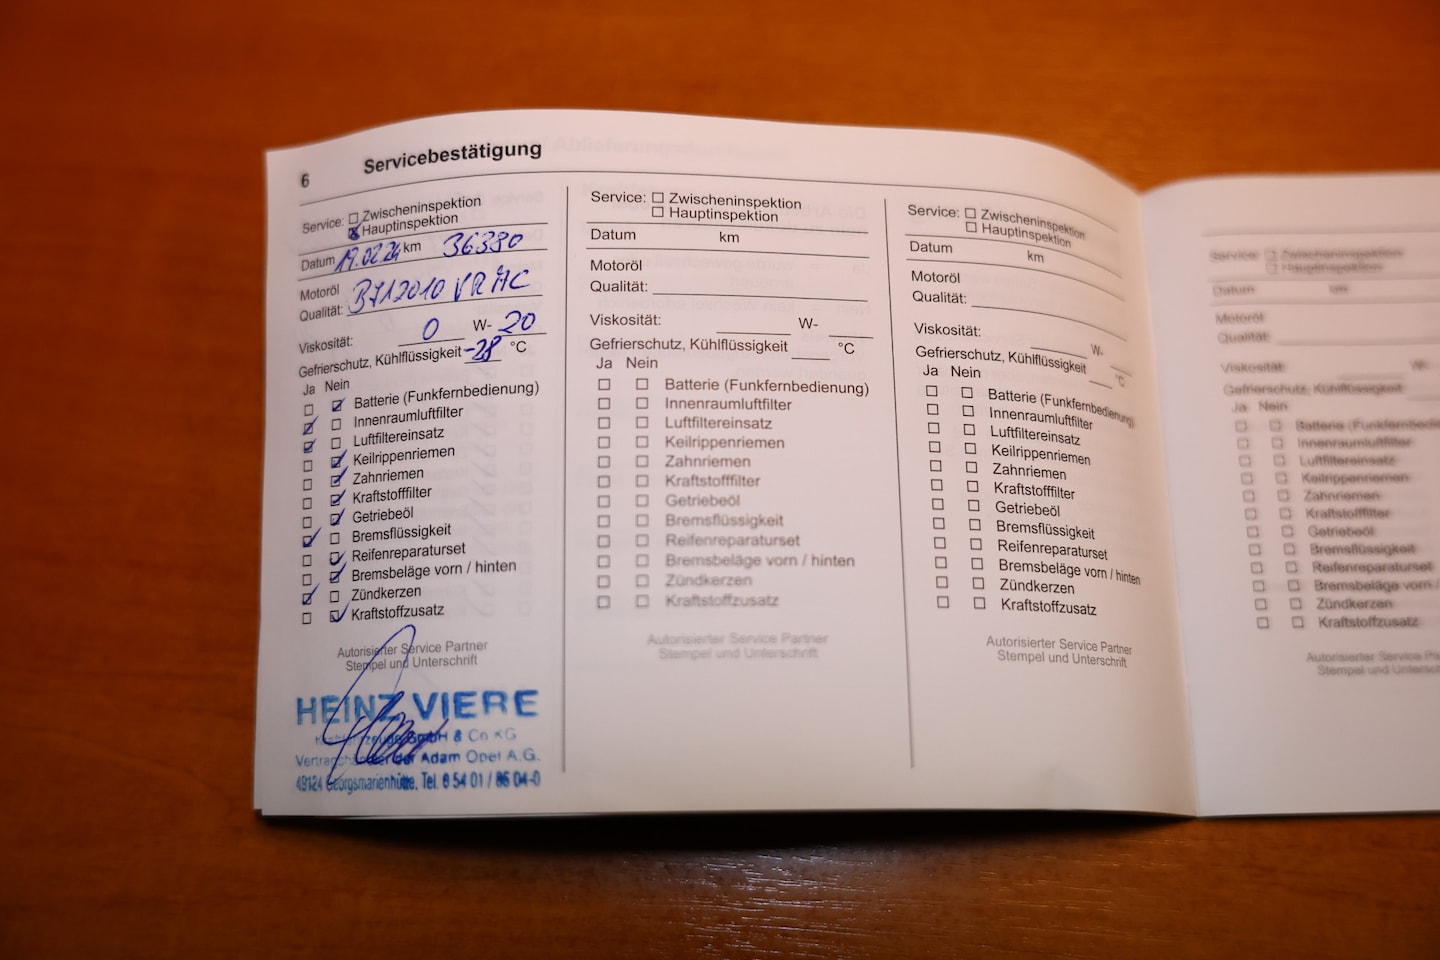 6 Servicebestätigung
Service: Zwischeninspektion
Hauptinspektion
Datum 19.02.24 km 36380
Motoröl
Qualität: B712010 VRMC
Viskosität: 0 W- 20
Gefrierschutz, Kühlflüssigkeit -28 °C
Ja Nein
Batterie (Funkfernbedienung)
Innenraumluftfilter
Luftfiltereinsatz
Keilrippenriemen
Zahnriemen
Kraftstofffilter
Getriebeöl
Bremsflüssigkeit
Reifenreparaturset
Bremsbeläge vorn / hinten
Zündkerzen
Kraftstoffzusatz
Autorisierter Service Partner
Stempel und Unterschrift
HEINZ VIERE
GmbH & Co KG
der Adam Opel A.G.
49124 Georgsmarienhütte, Tel. 0 54 01 / 86 04-0
Service: Zwischeninspektion
Hauptinspektion
Datum km
Motoröl
Qualität:
Viskosität: W-
Gefrierschutz, Kühlflüssigkeit °C
Ja Nein
Batterie (Funkfernbedienung)
Innenraumluftfilter
Luftfiltereinsatz
Keilrippenriemen
Zahnriemen
Kraftstofffilter
Getriebeöl
Bremsflüssigkeit
Reifenreparaturset
Bremsbeläge vorn / hinten
Zündkerzen
Kraftstoffzusatz
Autorisierter Service Partner
Stempel und Unterschrift
Service: Zwischeninspektion
Hauptinspektion
Datum km
Motoröl
Qualität:
Viskosität: W-
Gefrierschutz, Kühlflüssigkeit °C
Ja Nein
Batterie (Funkfernbedienung)
Innenraumluftfilter
Luftfiltereinsatz
Keilrippenriemen
Zahnriemen
Kraftstofffilter
Getriebeöl
Bremsflüssigkeit
Reifenreparaturset
Bremsbeläge vorn / hinten
Zündkerzen
Kraftstoffzusatz
Autorisierter Service Partner
Stempel und Unterschrift
Service: Zwischeninspektion
Hauptinspektion
Datum km
Motoröl
Qualität:
Viskosität: W-
Gefrierschutz, Kühlflüssigkeit
Ja Nein
Batterie
Innenraumluftfilter
Luftfiltereinsatz
Keilrippenriemen
Zahnriemen
Kraftstofffilter
Getriebeöl
Bremsflüssigkeit
Reifenreparaturset
Bremsbeläge vorn /
Zündkerzen
Kraftstoffzusatz
Autorisierter Service
Stempel und